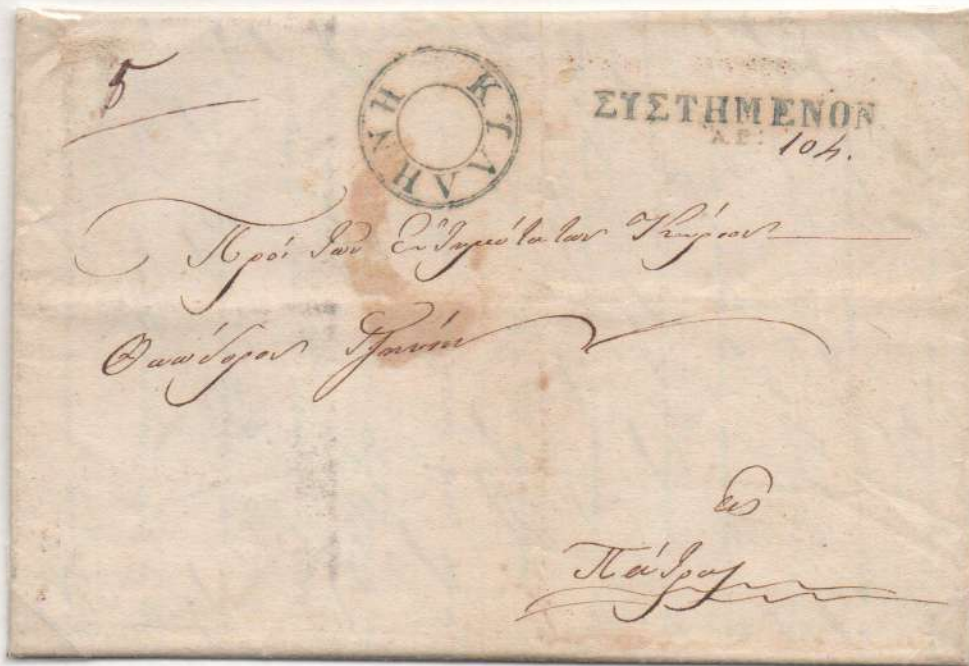 5
ΚΥΛΛΗΝΗ
ΣΥΣΤΗΜΕΝΟΝ
ΑΡ: 104.
Πρός τον Ευτιμότατον Κύριον
Θεόδορον
εις
Πάτρας